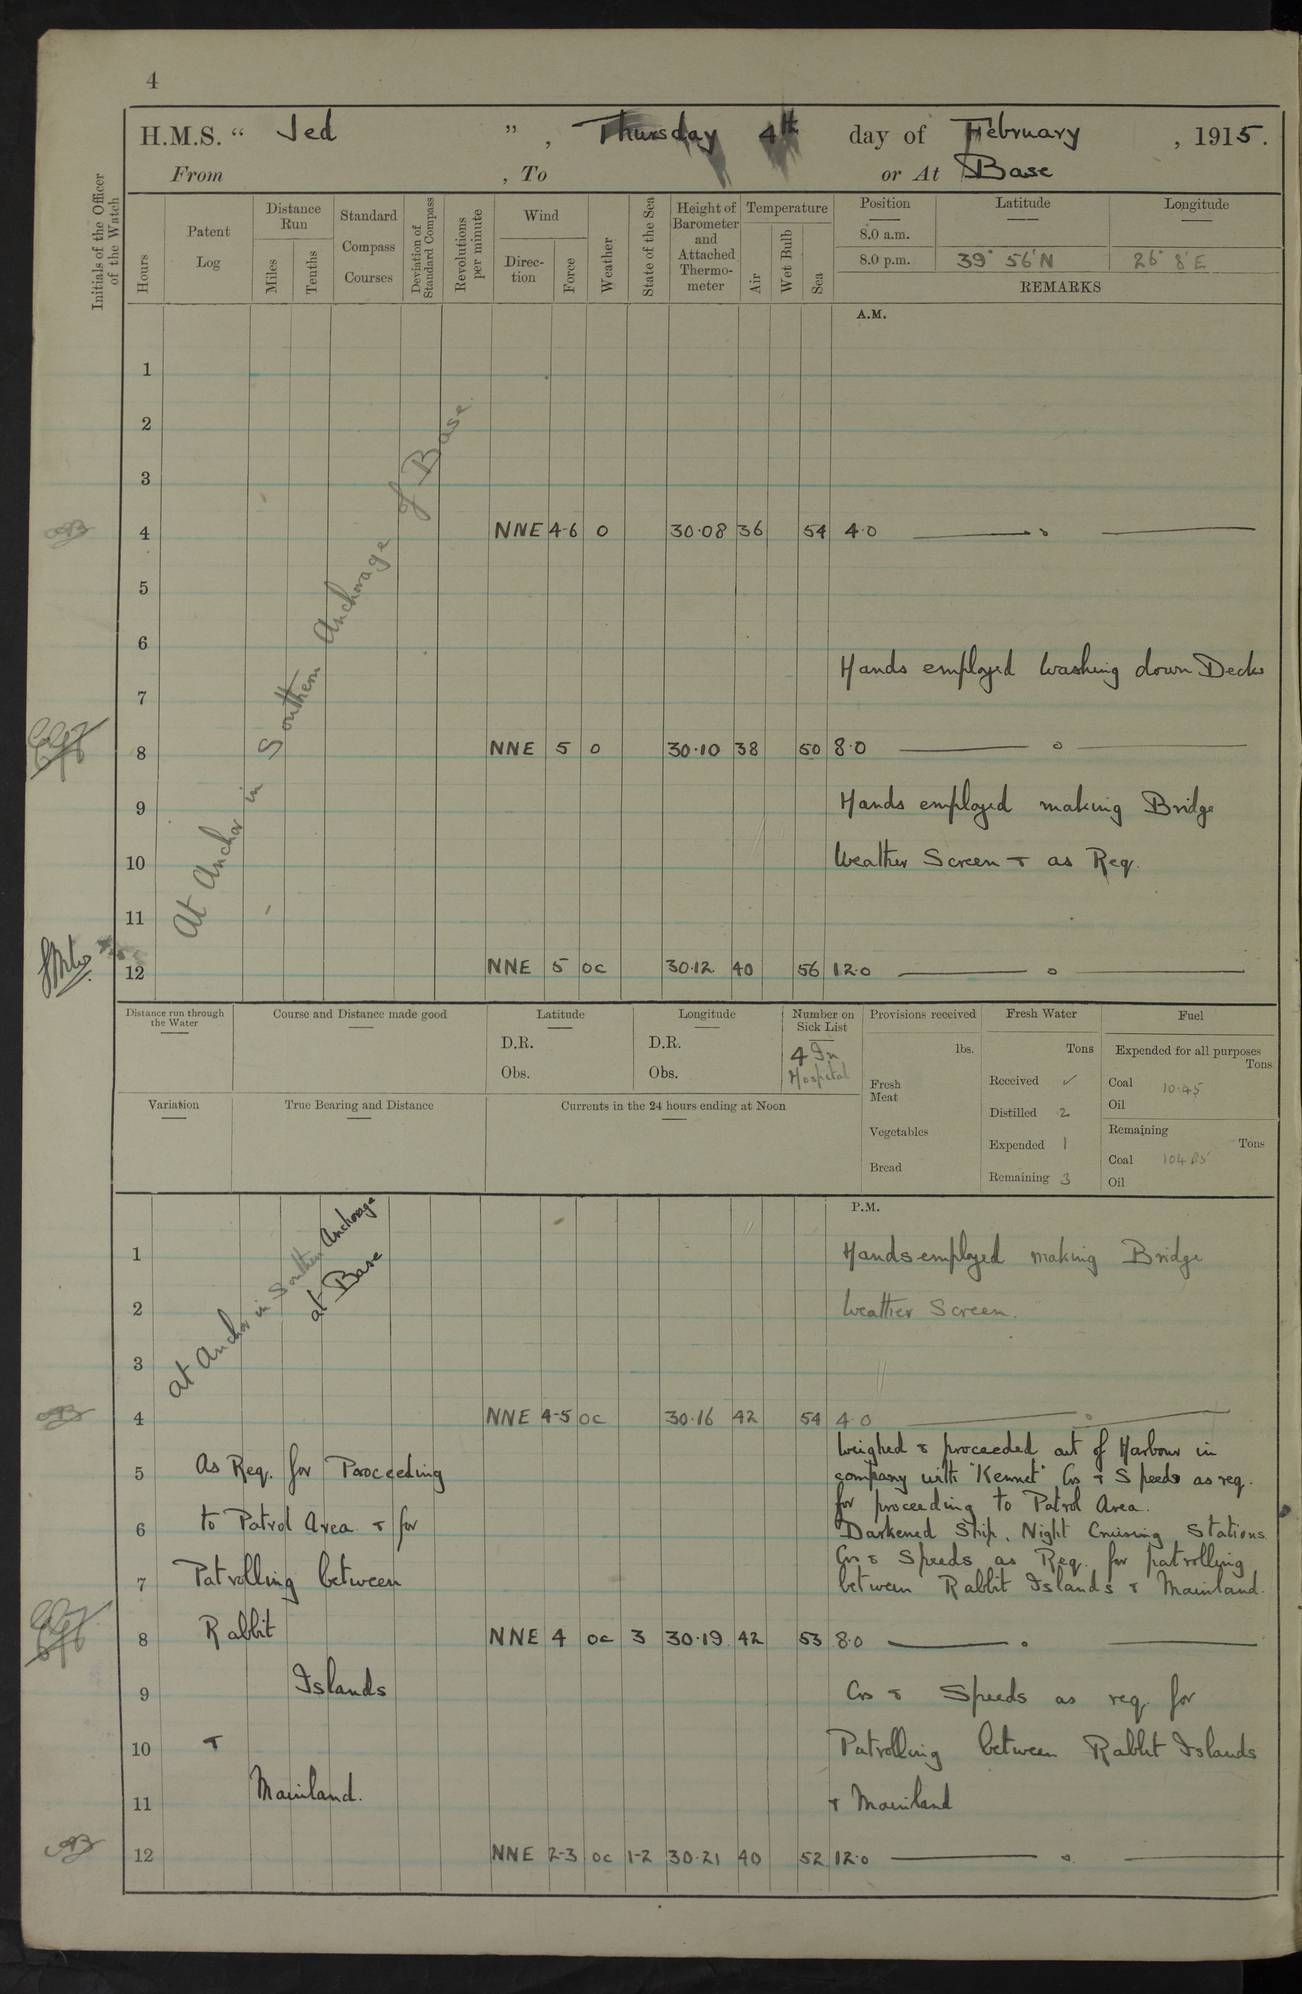 4
H.M.S. “ Jed ” , Thursday 4th day of February , 1915.
From , To or At Base
Initials of the Officer of the Watch
Hours
Patent Log
Distance Run
Miles
Tenths
Standard Compass Courses
Deviation of Standard Compass
Revolutions per minute
Wind
Direction
Force
Weather
State of the Sea
Height of Barometer and Attached Thermometer
Temperature
Air
Wet Bulb
Sea
Position Latitude Longitude
8.0 a.m.
8.0 p.m. 39° 56' N 26° 8' E
REMARKS
A.M.
At Anchor in Southern Anchorage of Base
1
2
3
4 NNE 4-6 o 30.08 36 54 4.0
5
6
Hands employed washing down Decks
7
8 NNE 5 o 30.10 38 50 8.0
9 Hands employed making Bridge
10 Weather Screen & as Req.
11
12 NNE 5 oc 30.12 40 56 12.0
Distance run through the Water
Course and Distance made good
Latitude
D.R.
Obs.
Longitude
D.R.
Obs.
Number on Sick List
4 In
Hospital
Provisions received
lbs.
Fresh Meat
Vegetables
Bread
Fresh Water
Tons
Received ✓
Distilled 2
Expended 1
Remaining 3
Fuel
Expended for all purposes
Tons
Coal 10.45
Oil
Remaining
Tons
Coal
Oil
Variation
True Bearing and Distance
Currents in the 24 hours ending at Noon
P.M.
At Anchor in Southern Anchorage
at Base
1 Hands employed making Bridge
2 Weather Screen.
3
4 NNE 4-5 oc 30.16 42 54 4.0
Weighed & proceeded out of Harbour in
5 As Req. for Proceeding company with "Kennet" Cos & Speeds as req.
for proceeding to Patrol Area.
6 to Patrol Area & for Darkened Ship. Night Cruising Stations.
Cos & Speeds as Req. for patrolling
7 Patrolling between between Rabbit Islands & Mainland.
8 Rabbit NNE 4 oc 3 30.19 42 53 8.0
9 Islands Cos & Speeds as req. for
10 & Patrolling between Rabbit Islands
11 Mainland. & Mainland
12 NNE 2-3 oc 1-2 30.21 40 52 12.0